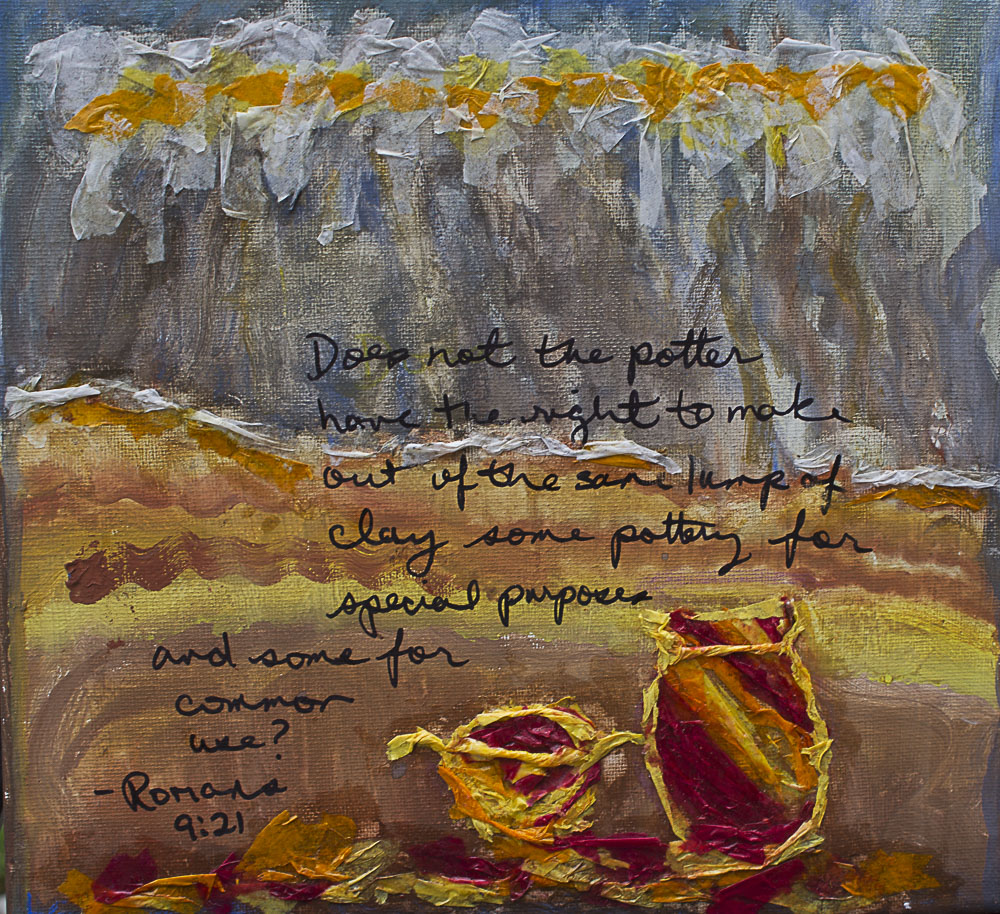 Does not the potter
have the right to make
out of the same lump of
clay some pottery for
special purposes
and some for
common
use?
- Romans
9:21